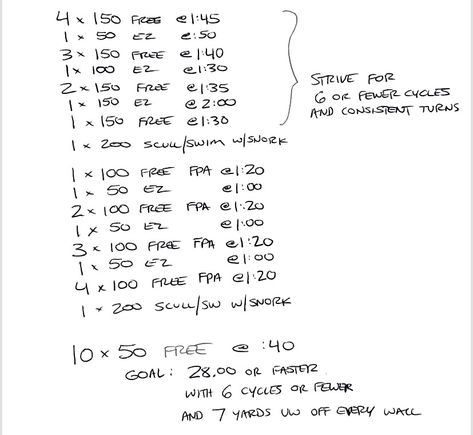 4 x 150 FREE @ 1:45
1 x 50 EZ @ :50
3 x 150 FREE @ 1:40
1 x 100 EZ @ 1:30
2 x 150 FREE @ 1:35
1 x 150 EZ @ 2:00
1 x 150 FREE @ 1:30
STRIVE FOR
6 OR FEWER CYCLES
AND CONSISTENT TURNS
1 x 200 SCULL/SWIM W/SNORK
1 x 100 FREE FPA @ 1:20
1 x 50 EZ @ 1:00
2 x 100 FREE FPA @ 1:20
1 x 50 EZ @ 1:00
3 x 100 FREE FPA @ 1:20
1 x 50 EZ @ 1:00
4 x 100 FREE FPA @ 1:20
1 x 200 SCULL/SW W/SNORK
10 x 50 FREE @ :40
GOAL: 28.00 OR FASTER
WITH 6 CYCLES OR FEWER
AND 7 YARDS UW OFF EVERY WALL